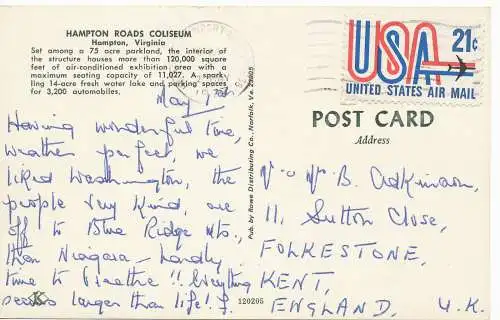 HAMPTON ROADS COLISEUM
Hampton, Virginia
Set among a 75 acre parkland, the interior of
the structure houses more than 120,000 square
feet of air-conditioned exhibition area with a
maximum seating capacity of 11,027. A spark-
ling 14-acre fresh water lake and parking spaces
for 3,200 automobiles.
May
Having wonderful time,
weather perfect, we
liked Washington, the
people very kind, are
off to Blue Ridge Mts.,
then Niagara - hardly
time to breathe!! Everything
seems larger than life!
Pub. by Rowe Distributing Co., Norfolk, Va. 23505
120205
USA 21¢
UNITED STATES AIR MAIL
POST CARD
Address
B. Adkinson,
11, Sutton Close,
FOLKESTONE,
KENT,
ENGLAND, U.K.